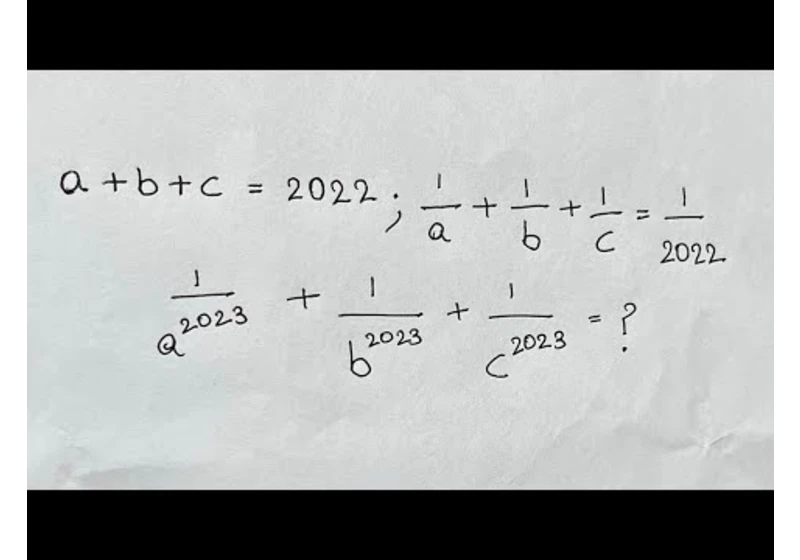 a + b + c = 2022 ; 1/a + 1/b + 1/c = 1/2022
1/a^2023 + 1/b^2023 + 1/c^2023 = ?